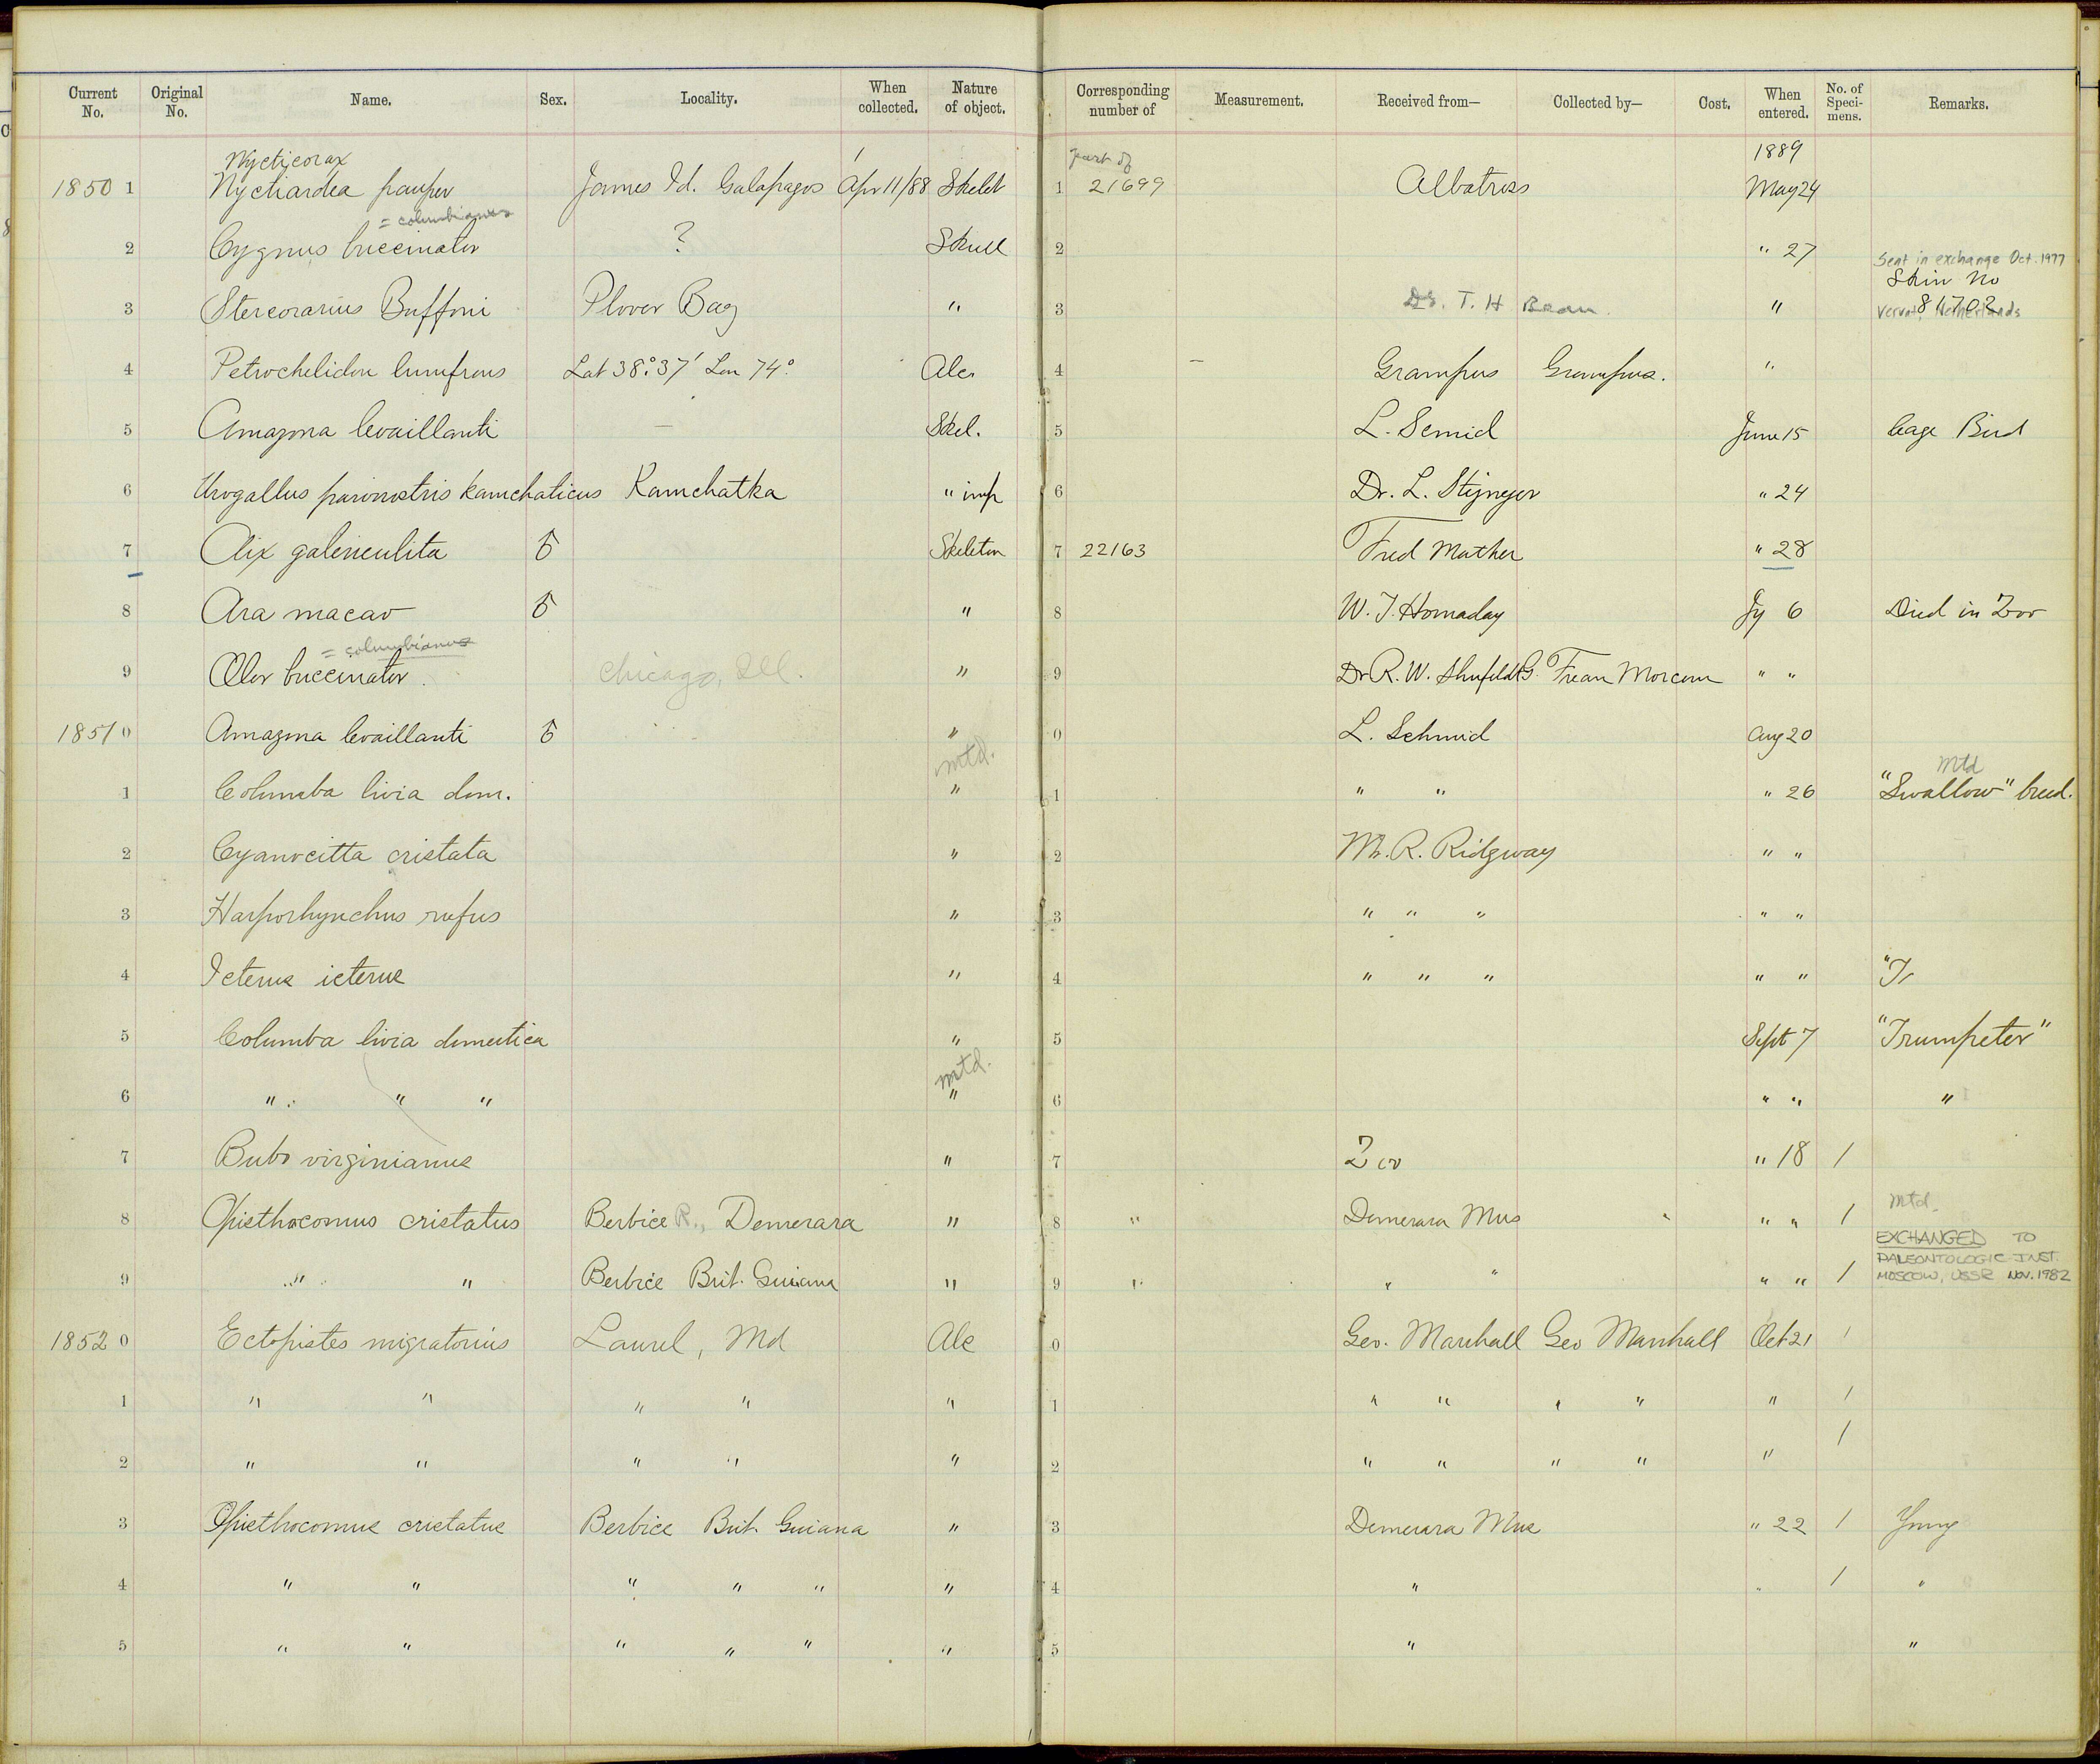 Current No. Original No. Name. Sex. Locality. When collected. Nature of object. Corresponding number of Measurement. Received from— Collected by— Cost. When entered. No. of Speci-mens. Remarks.
Nycticorax part of 1889
1850 1 Nyctiardea pauper James Id. Galapagos Apr 11/88 Skelet 1 21699 Albatross May 24
= columbianus
2 Cygnus buccinator ? Skull 2 " 27
Sent in exchange Oct. 1977
Skin No
3 Stercorarius Buffoni Plover Bay " 3 Dr. T. H Bean. " 81702
Netherlands
4 Petrochelidon lunifrons Lat 38°37' Lon 74° Alc. 4 Grampus Grampus. "
5 Amazona levaillanti — Skel. 5 L. Semid June 15 Cage Bird
6 Urogallus parvirostris kamchaticus Kamchatka " imp 6 Dr. L. Stejneger " 24
7 Aix galericulita ♂ Skeleton 7 22163 Fred Mather " 28
8 Ara macao ♂ " 8 W. T. Hornaday Jy 6 Died in Zoo
= columbianus
9 Olor buccinator. Chicago, Ill. " 9 Dr R. W. Shufeldt G. Frean Morcom " "
1851 0 Amazona levaillanti ♂ " 0 L. Schmid Aug 20
mtd. Mtd
1 Columba livia dom. " 1 " " " 26 "Swallow" breed.
2 Cyanocitta cristata " 2 Mr. R. Ridgway " "
3 Harporhynchus rufus " 3 " " " " "
4 Icterus icterus " 4 " " " " "
5 Columba livia domestica " 5 Sept 7 "Trumpeter"
mtd.
6 " " " " 6 " " "
7 Bubo virginianus " 7 Zoo " 18 1
Mtd.
8 Opisthocomus cristatus Berbice R., Demerara " 8 " Demerara Mus " " " 1
EXCHANGED TO
PALEONTOLOGIC INST.
9 " " Berbice Brit. Guiana " 9 " " " " " 1 MOSCOW, USSR NOV. 1982
1852 0 Ectopistes migratorius Laurel, Md Alc 0 Geo. Marshall Geo Marshall Oct 21 1
1 " " " " " 1 " " " " " 1
2 " " " " " 2 " " " " " 1
3 Opisthocomus cristatus Berbice Brit. Guiana " 3 Demerara Mus " 22 1 Young
4 " " " " " " 4 " " 1 "
5 " " " " " " 5 " "